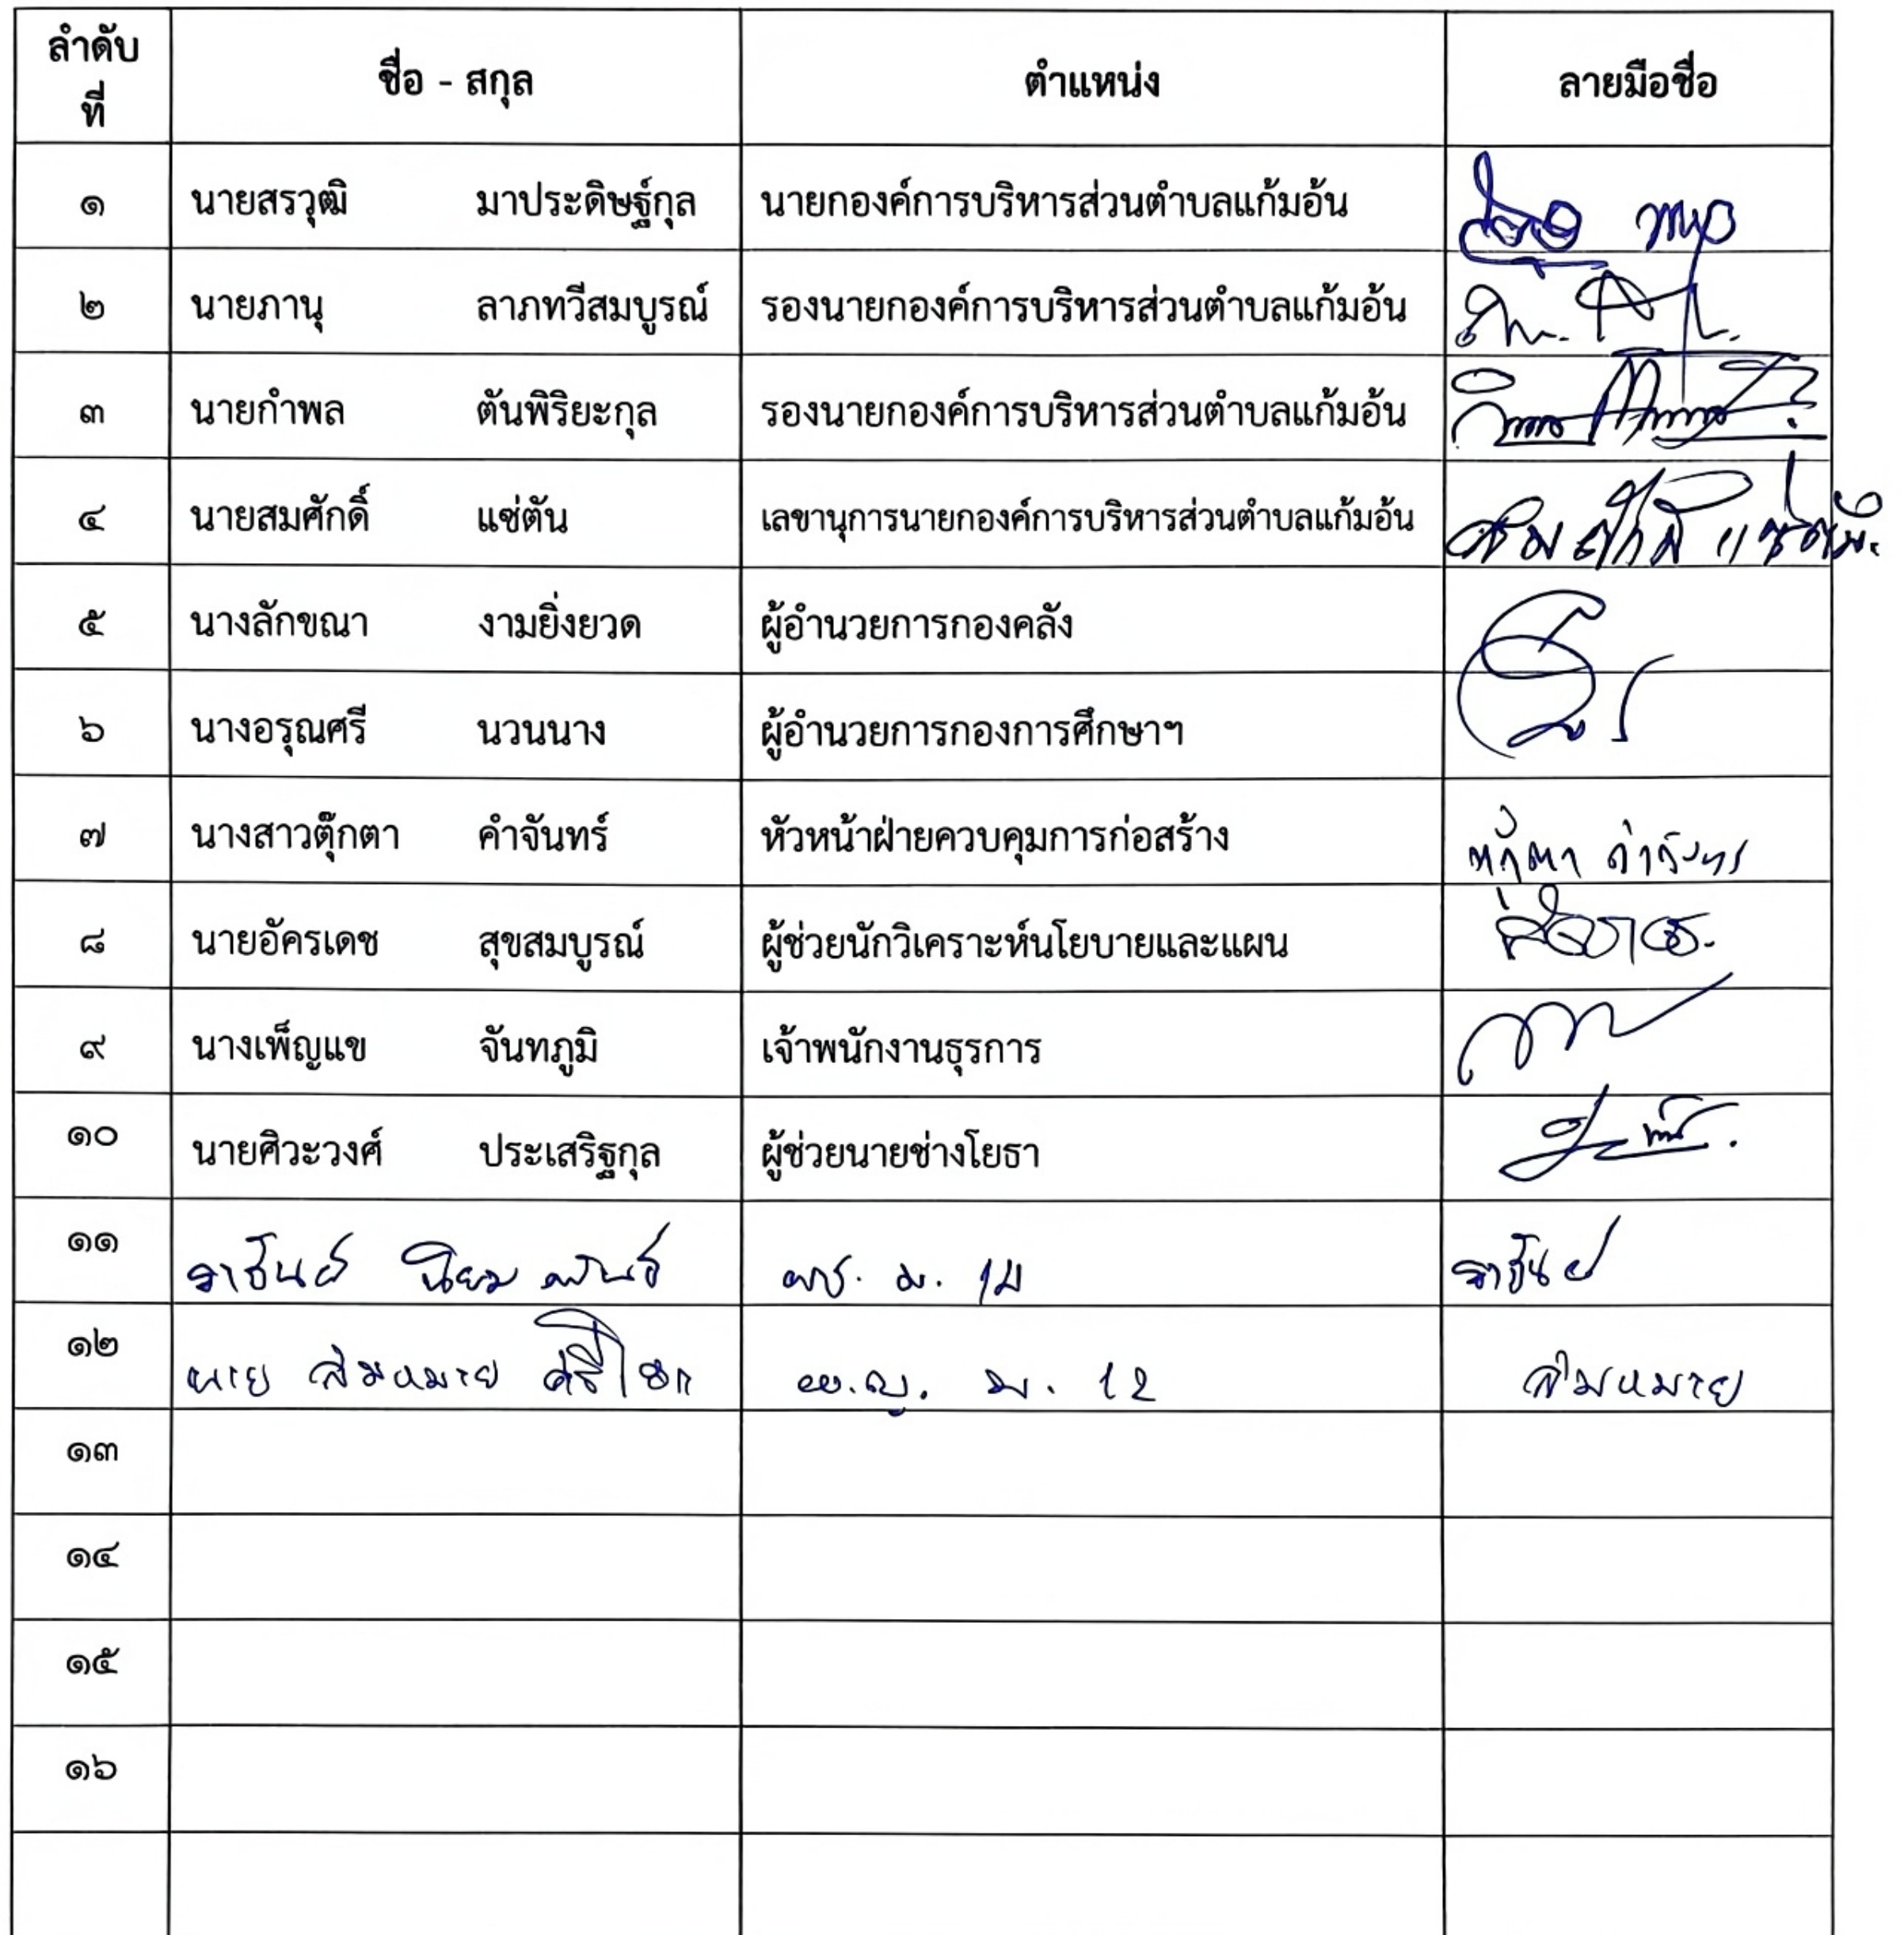 ลำดับที่ ชื่อ - สกุล ตำแหน่ง ลายมือชื่อ
๑ นายสรวุฒิ มาประดิษฐ์กุล นายกองค์การบริหารส่วนตำบลแก้มอ้น
๒ นายภานุ ลาภทวีสมบูรณ์ รองนายกองค์การบริหารส่วนตำบลแก้มอ้น
๓ นายกำพล ตันพิริยะกุล รองนายกองค์การบริหารส่วนตำบลแก้มอ้น
๔ นายสมศักดิ์ แซ่ตัน เลขานุการนายกองค์การบริหารส่วนตำบลแก้มอ้น สมศักดิ์ แซ่ตัน
๕ นางลักขณา งามยิ่งยวด ผู้อำนวยการกองคลัง
๖ นางอรุณศรี นวนนาง ผู้อำนวยการกองการศึกษาฯ
๗ นางสาวตุ๊กตา คำจันทร์ หัวหน้าฝ่ายควบคุมการก่อสร้าง ตุ๊กตา คำจันทร์
๘ นายอัครเดช สุขสมบูรณ์ ผู้ช่วยนักวิเคราะห์นโยบายและแผน
๙ นางเพ็ญแข จันทภูมิ เจ้าพนักงานธุรการ
๑๐ นายศิวะวงศ์ ประเสริฐกุล ผู้ช่วยนายช่างโยธา
๑๑ ราชันย์ นิยมพันธ์ ผช. ม. 12 ราชันย์
๑๒ นาย สมหมาย ผ.ญ. ม. 12 สมหมาย
๑๓
๑๔
๑๕
๑๖